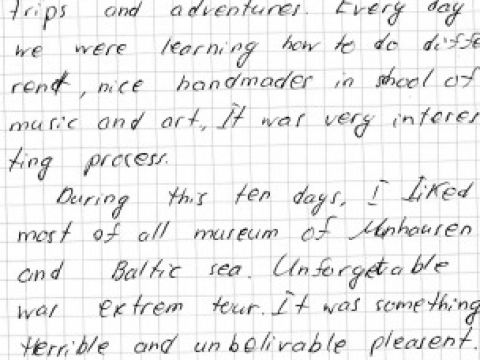 trips and adventures. Every day
we were learning how to do diffe
rent, nice handmades in shool of
music and art. It was very interes
ting process.
During this ten days, I liked
most of all museum of Munhausen
and Baltic sea. Unforgetable
was extrem tour. It was something
terrible and unbelivable pleasent.